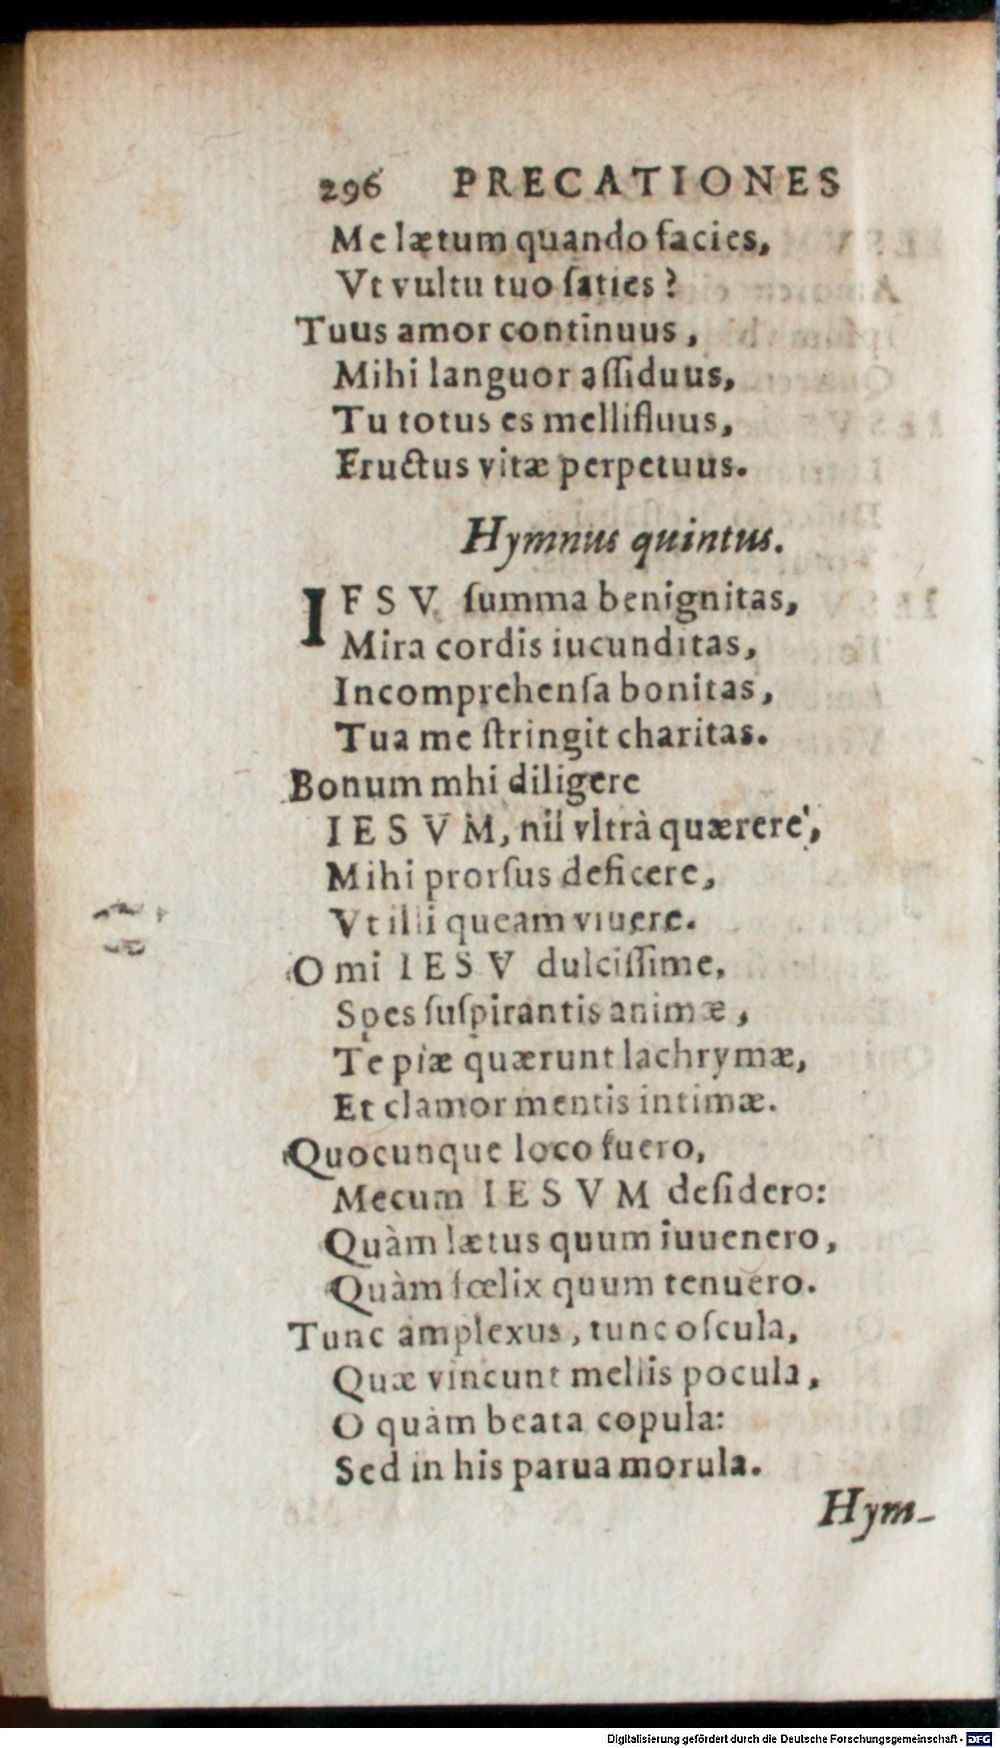 296 PRECATIONES
Me lætum quando facies,
Vt vultu tuo ſaties?
Tuus amor continuus,
Mihi languor aſſiduus,
Tu totus es mellifluus,
Fructus vitæ perpetuus.
Hymnus quintus.
IESV ſumma benignitas,
Mira cordis iucunditas,
Incomprehenſa bonitas,
Tua me ſtringit charitas.
Bonum mhi diligere
IESVM, nil vltrà quærere,
Mihi prorſus deficere,
Vt illi queam viuere.
O mi IESV dulciſſime,
Spes ſuſpirantis animæ,
Te piæ quærunt lachrymæ,
Et clamor mentis intimæ.
Quocunque loco fuero,
Mecum IESVM deſidero:
Quàm lætus quum iuuenero,
Quàm fœlix quum tenuero.
Tunc amplexus, tunc oſcula,
Quæ vincunt mellis pocula,
O quàm beata copula:
Sed in his parua morula.
Hym-
Digitalisierung gefördert durch die Deutsche Forschungsgemeinschaft - DFG